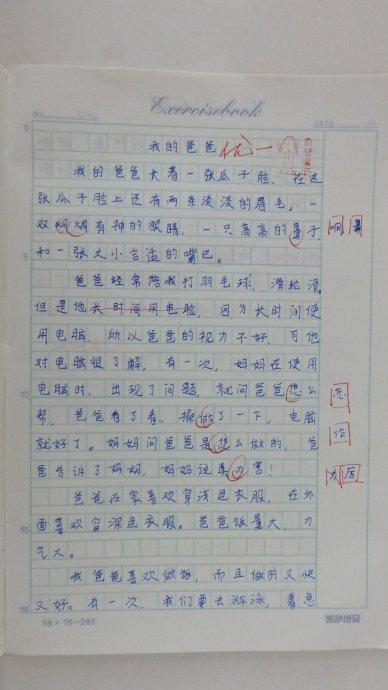 Exercisebook
No.
DATE
0
我的爸爸 优一
我的爸爸长着一张瓜子脸，在这
张瓜子脸上还有两条淡淡的眉毛，一
双炯炯有神的眼睛，一只高高的鼻子
和一张大小合适的嘴巴。
5
爸爸经常陪我打羽毛球，滑轮滑
但是他长时间用电脑，因为长时间使
用电脑，所以爸爸的视力不好，可他
对电脑很了解，有一次，妈妈在使用
电脑时，出现了问题，就问爸爸怎么
10
帮，爸爸看了看，操做了一下，电脑
作
就好了。妈妈问爸爸是怎么做的，爸
爸告诉了妈妈，妈妈说真力害！
厉
爸爸在家喜欢穿浅色衣服，在外
面喜欢穿深色衣服。爸爸饭量大，力
15
气大。
我爸爸喜欢做饭，而且做的又快
又好。有一次，我们要去游泳，着急
18
18×16=288